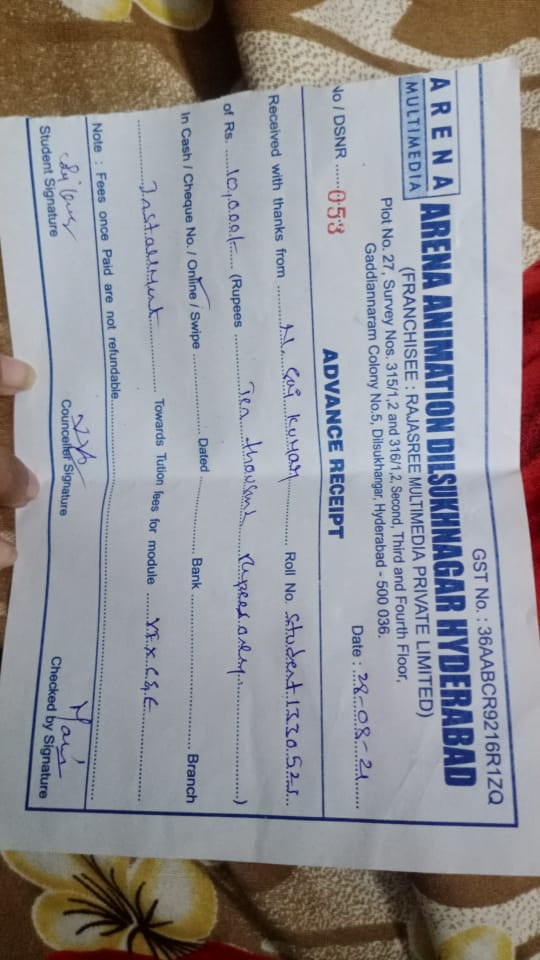 GST No. : 36AABCR9216R1ZQ
ARENA
MULTIMEDIA
ARENA ANIMATION DILSUKHNAGAR HYDERABAD
(FRANCHISEE : RAJASREE MULTIMEDIA PRIVATE LIMITED)
Plot No. 27, Survey Nos. 315/1,2 and 316/1,2, Second, Third and Fourth Floor,
Gaddiannaram Colony No.5, Dilsukhangar, Hyderabad - 500 036.
No / DSNR ......053 ADVANCE RECEIPT Date : 28-08-21
Received with thanks from Sai Kumar Roll No. Student 1330525
of Rs. 10,000/- (Rupees Ten thousand rupees only )
In Cash / Cheque No. / Online / Swipe Dated Bank Branch
Installment Towards Tution fees for module
Note : Fees once Paid are not refundable
Student Signature Councellor Signature Checked by Signature